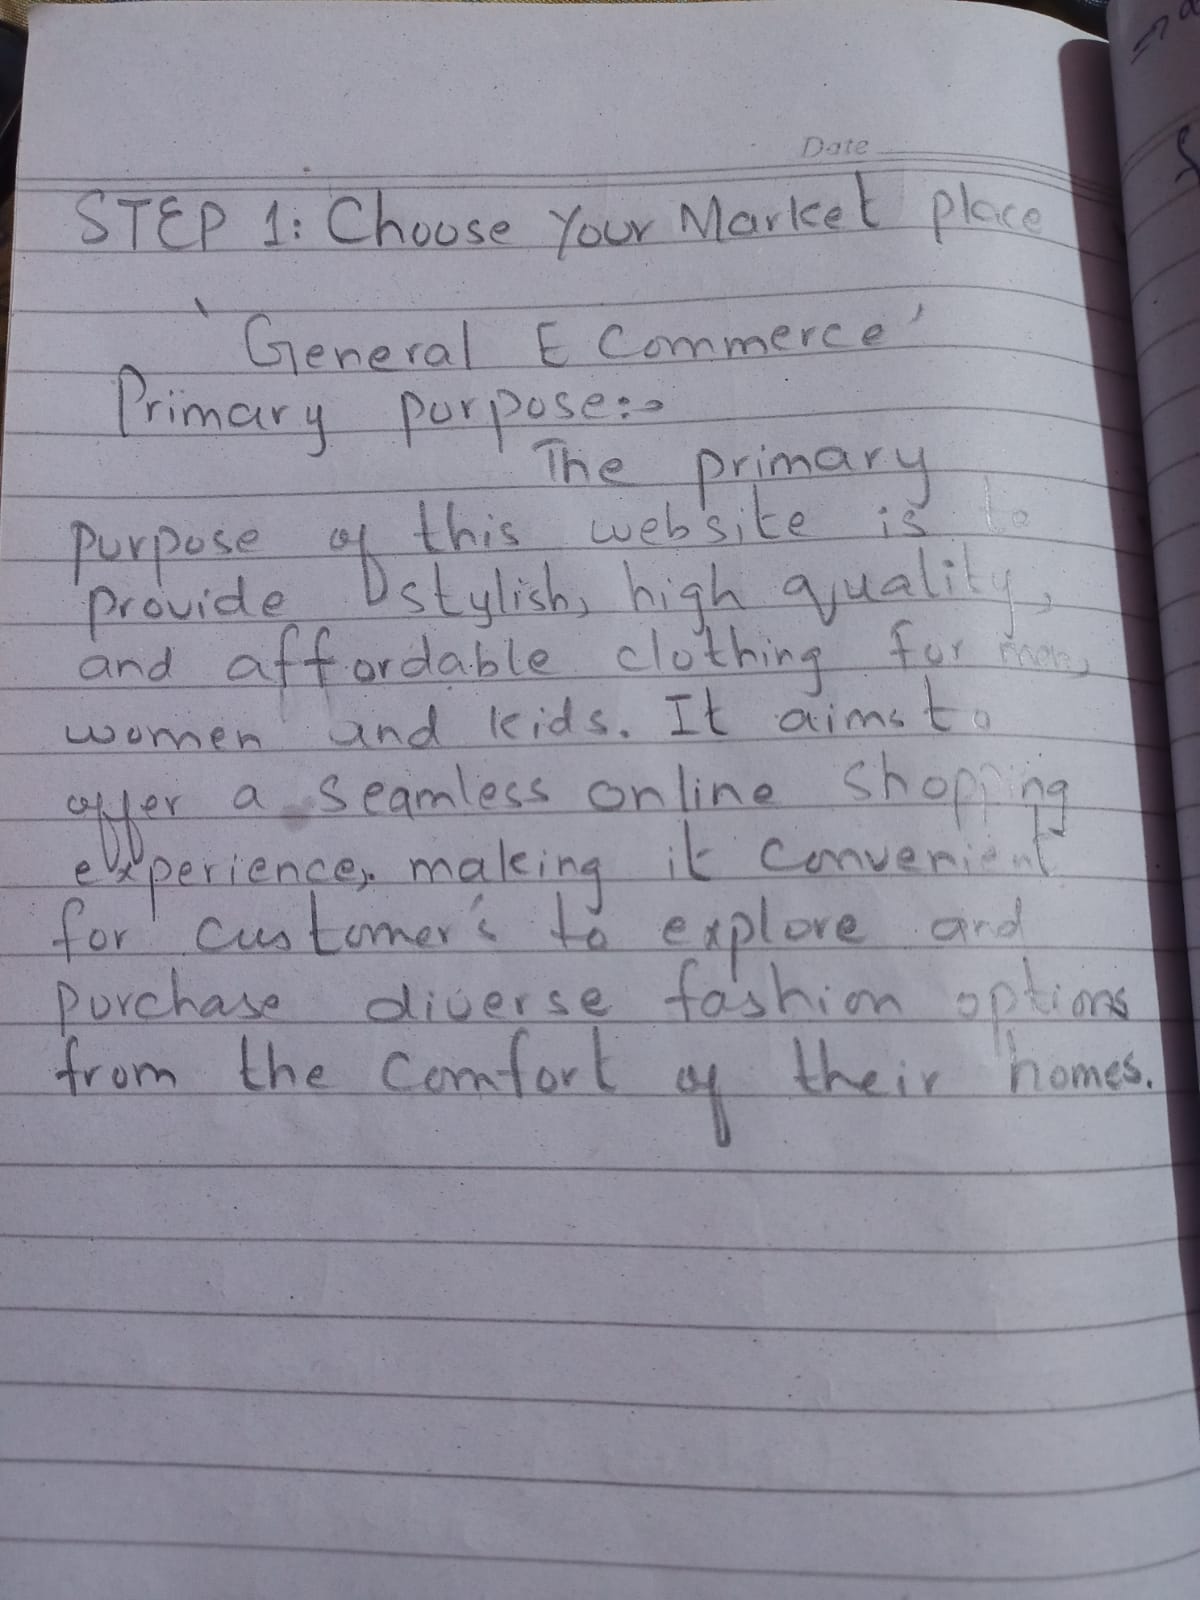 Date
STEP 1: Choose Your Market place
'General E Commerce'
Primary purpose:-
The primary
purpose of this website is to
provide stylish, high quality,
and affordable clothing for men,
women and kids. It aims to
offer a seamless online shopping
experience, making it convenient
for customer's to explore and
purchase diverse fashion options
from the comfort of their homes.